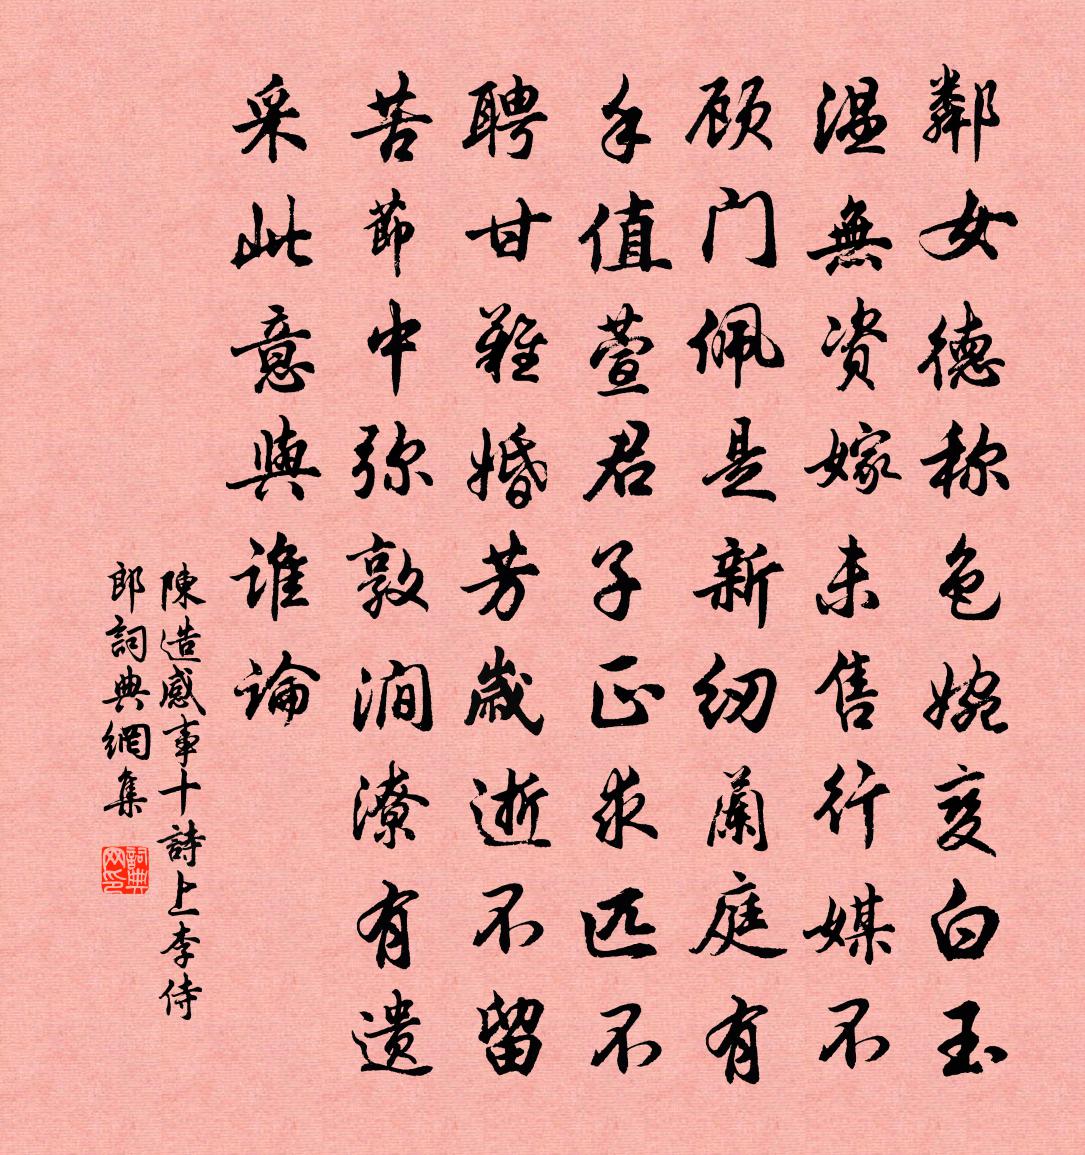 鄰女德称色婉変白玉
温無资嫁未售行媒不
顾门佩是新纫蘭庭有
手值萱君子正求匹不
聘甘難婚芳歲逝不留
苦節中弥敦涧潦有遗
采此意與谁論
陳造感事十詩上李侍
郎詞典網集
詞典
网印